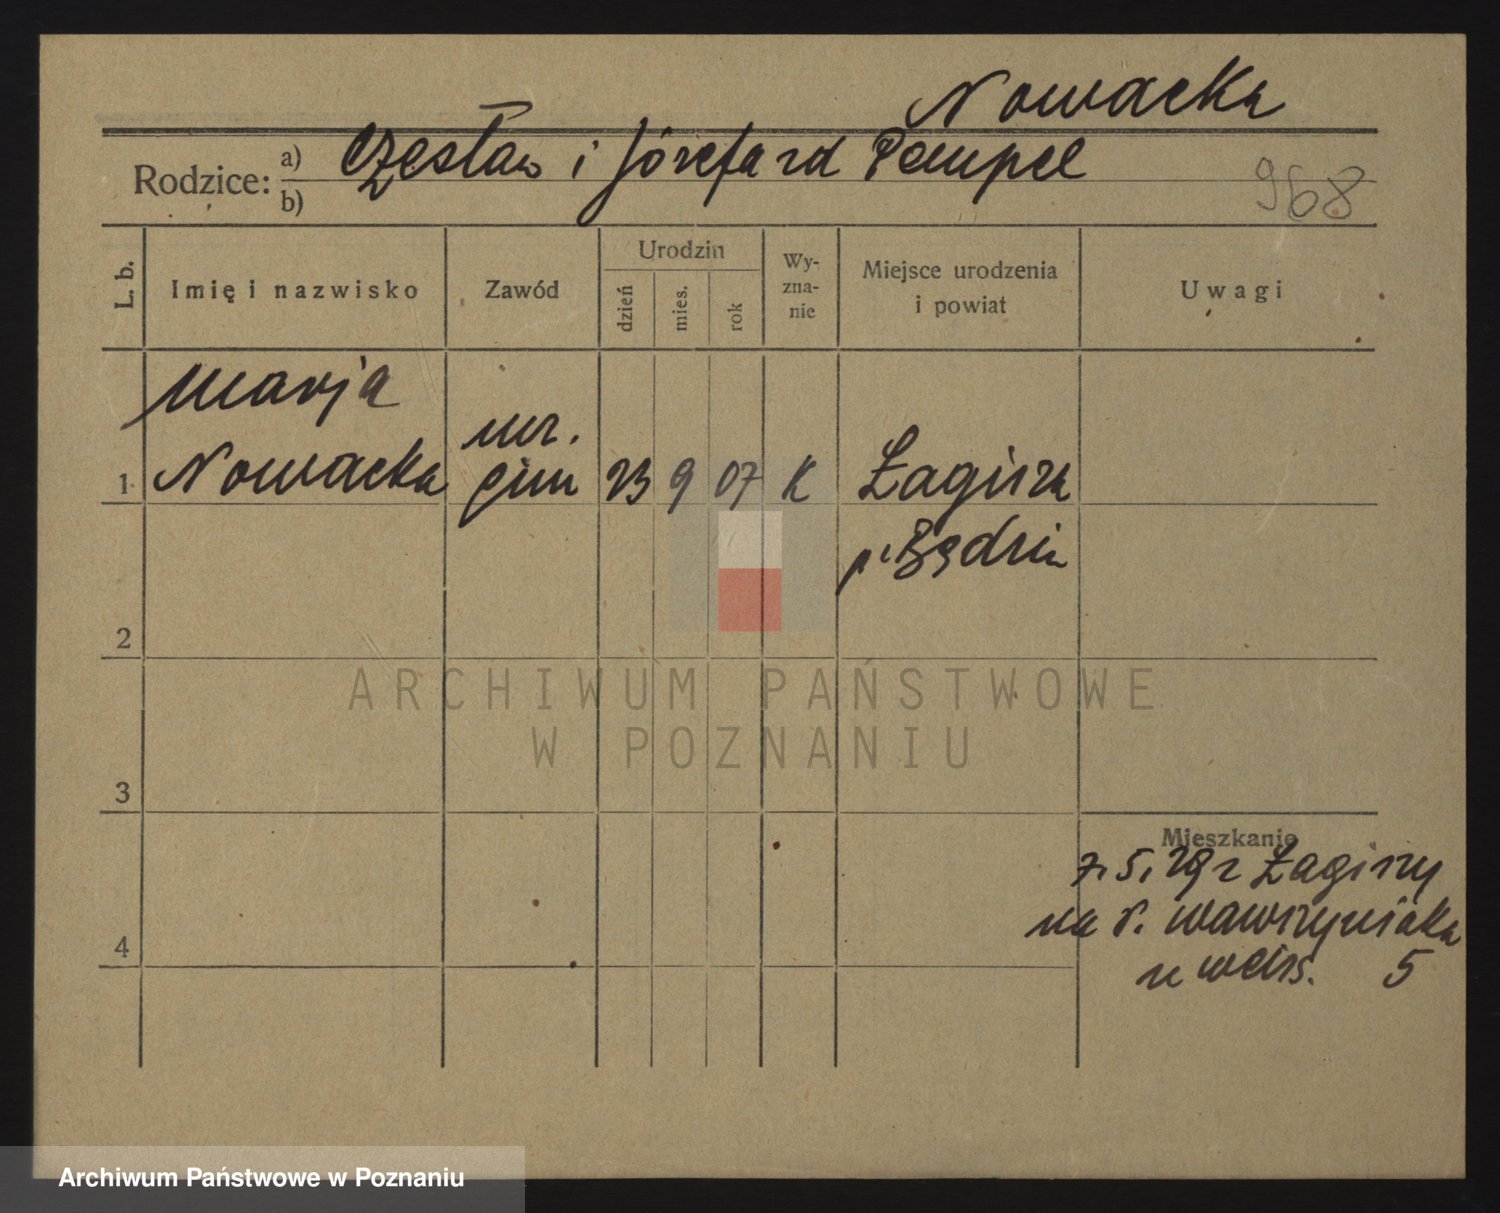 Nowacka
Rodzice: a) Czesław i Józefa zd Pempel
b)
968
L. b.
Imię i nazwisko
Zawód
Urodzin
dzień
mies.
rok
Wy-
zna-
nie
Miejsce urodzenia
i powiat
Uwagi
Marja
ucz.
1 Nowacka gim 23 9 07 K Łagisza
p. Będzin
2
ARCHIWUM PAŃSTWOWE
W POZNANIU
3
Mieszkanie
7.5.29 z Łagiszy
na r. Wawrzyniaka
u Weiss. 5
4
Archiwum Państwowe w Poznaniu